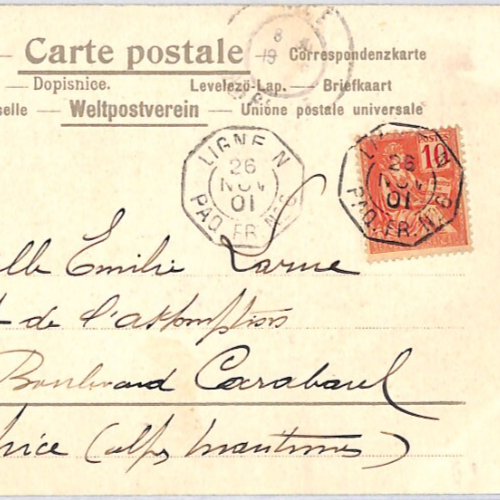 Carte postale — Correspondenzkarte
— Dopisnice. Levelező-Lap. — Briefkaart
selle — Weltpostverein — Unione postale universale
8
19
LIGNE N
26
NOV
01
PAQ. FR. No 6
POSTES
10
LI
26
NOV
01
PAQ. FR. No 6
elle Emilie
de l'assomption
Boulevard Carabacel
Nice (alpes maritimes)